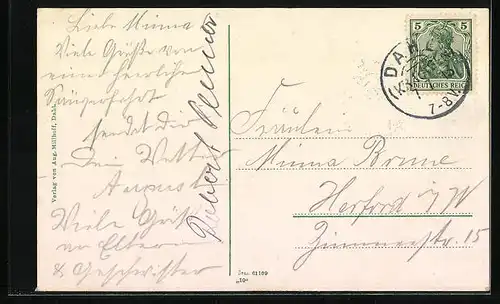 Liebe Minna
Viele Grüße von
einer herrlichen
Sängerfahrt
sendet dir
Dein Vetter
August
Viele Grüße
an Eltern
& Geschwister
Verlag von Aug. Millhoff, Dahl.
5 5
DEUTSCHES REICH
DAHL
7-8V
Fräulein
Minna Brune
Herford i/W
Zimmerstr. 15
61109